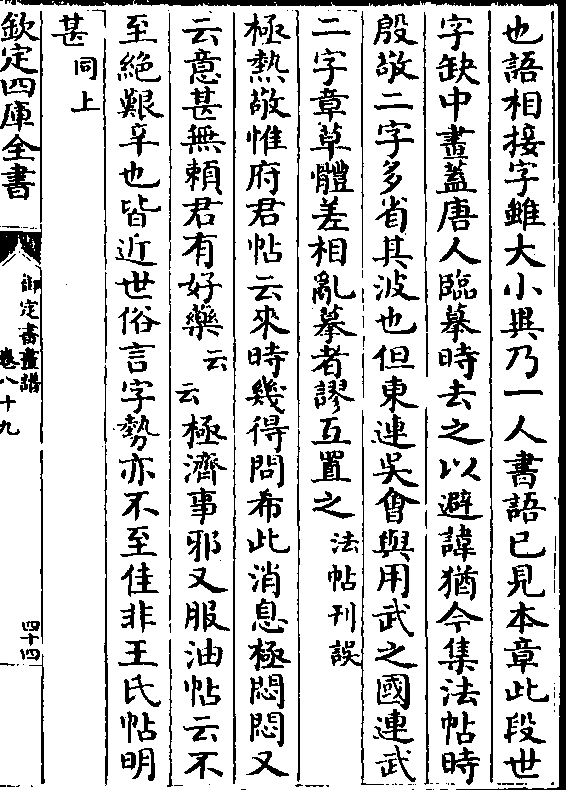 也語相接字雖大小異乃一人書語已見本章此段世
字缺中畫蓋唐人臨摹時去之以避諱猶今集法帖時
殷敬二字多省其波也但東連吳會與用武之國連武
二字章草體差相亂摹者謬互置之法帖刊誤
極熱敬惟府君帖云來時幾得問希此消息極悶悶又
云意甚無賴君有好藥云云極濟事邪又服油帖云不
至絕艱辛也皆近世俗言字勢亦不至佳非王氏帖明
甚同上
欽定四庫全書
御定書畫譜
卷八十九
四十四